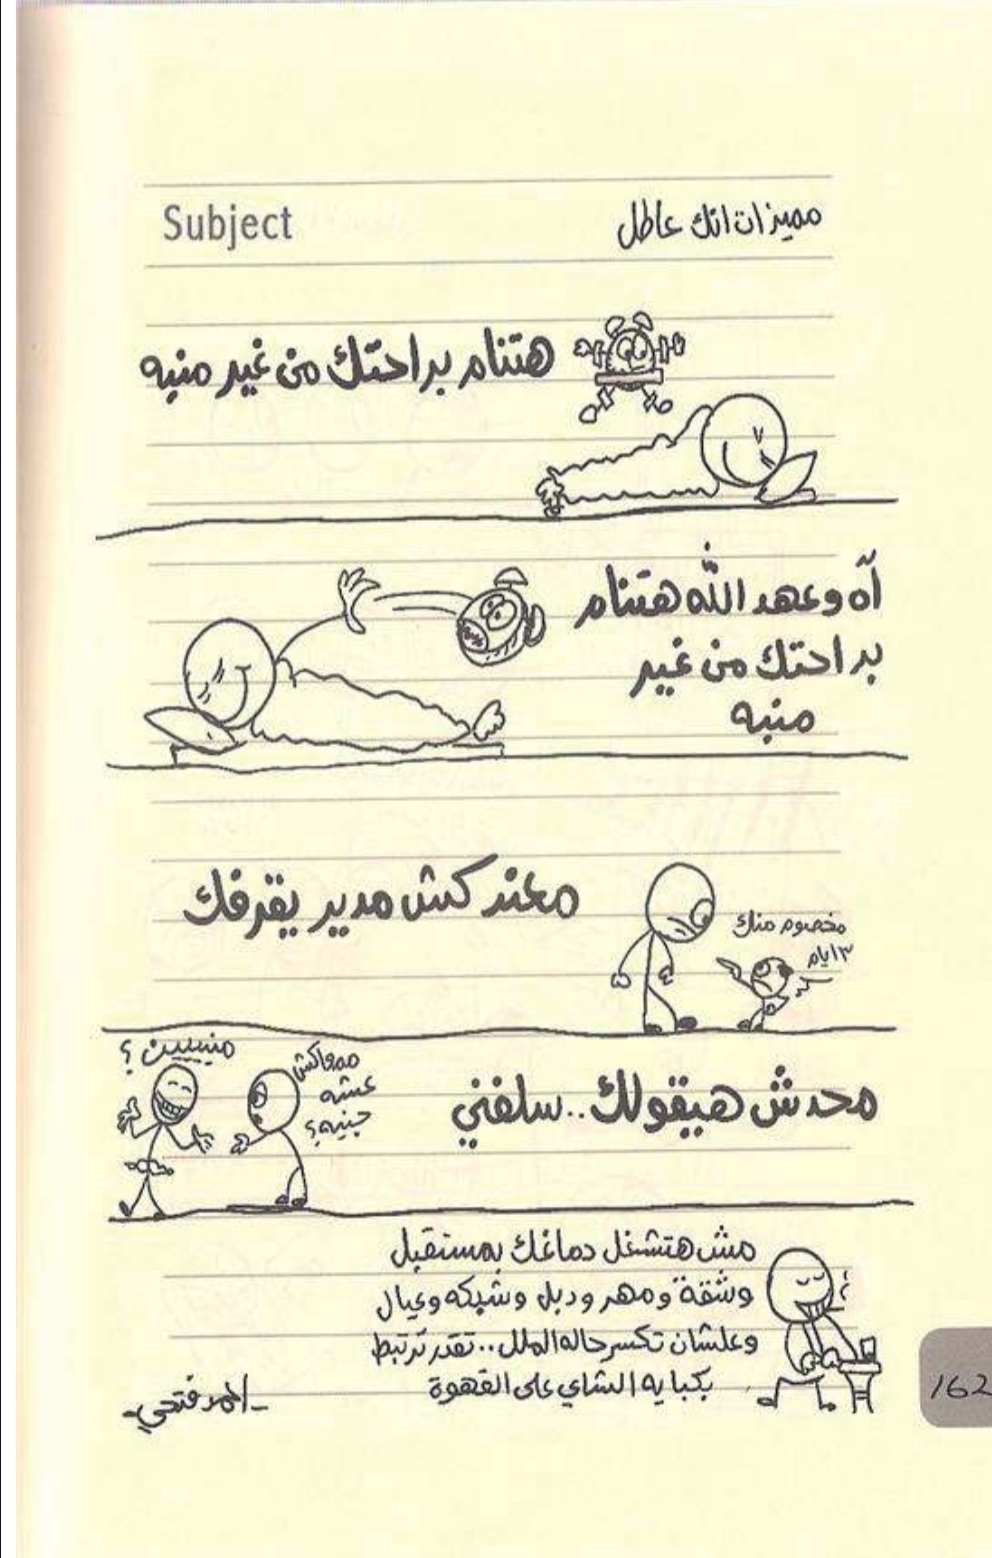 Subject
مميزات انك عاطل
هتنام براحتك من غير منبه
آه وعهد الله هتنام
براحتك من غير
منبه
معندكش مدير يقرفك
مخصوم منك
٣ ايام
محدش هيقولك..سلفني
معاكش
عشره
جنيه؟
مييييين؟
مش هتشغل دماغك بمستقبل
وشقة ومهر ودبل وشبكه وعيال
وعلشان تكسر حاله الملل..تقدر ترتبط
بكبايه الشاي على القهوة
-احمد فتحي-
162